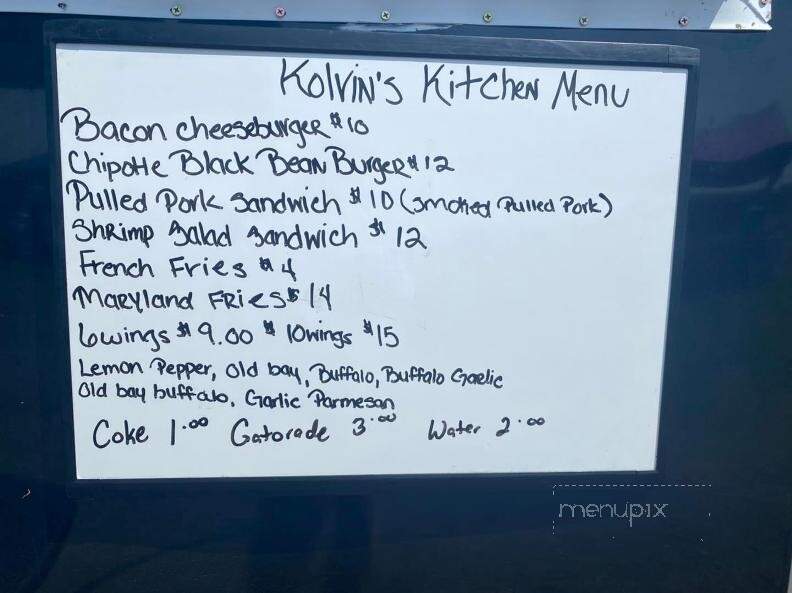 Kolvin's Kitchen Menu
Bacon cheeseburger $10
Chipotle Black Bean Burger $12
Pulled Pork Sandwich $10 (Smoked Pulled Pork)
Shrimp Salad Sandwich $12
French Fries $4
Maryland Fries $14
6wings $9.00 $ 10wings $15
Lemon Pepper, Old bay, Buffalo, Buffalo Garlic
Old bay buffalo, Garlic Parmesan
Coke 1.00 Gatorade 3.00 Water 2.00
menupix